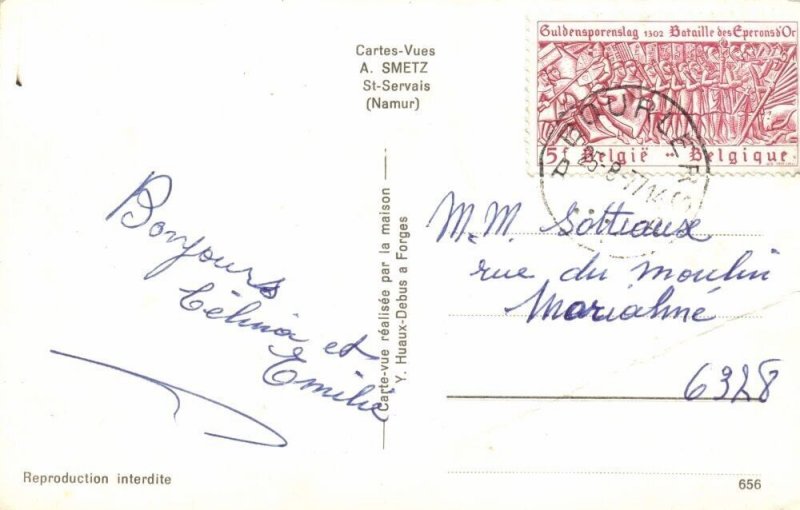 Cartes-Vues
A. SMETZ
St-Servais
(Namur)
Guldensporenslag 1302 Bataille des Eperons d'Or
5f België -- Belgique
25-8-77 14
Bonjours
Célina et
Emilie
Carte-vue réalisée par la maison
Y. Huaux-Debus a Forges
M.M. Sottiaux
rue du moulin
Marialmé
6328
Reproduction interdite
656